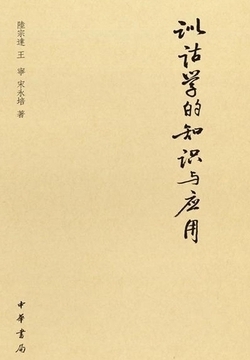 陸宗達 王 寧 宋永培 著
训诂学的知识与应用
中華書局